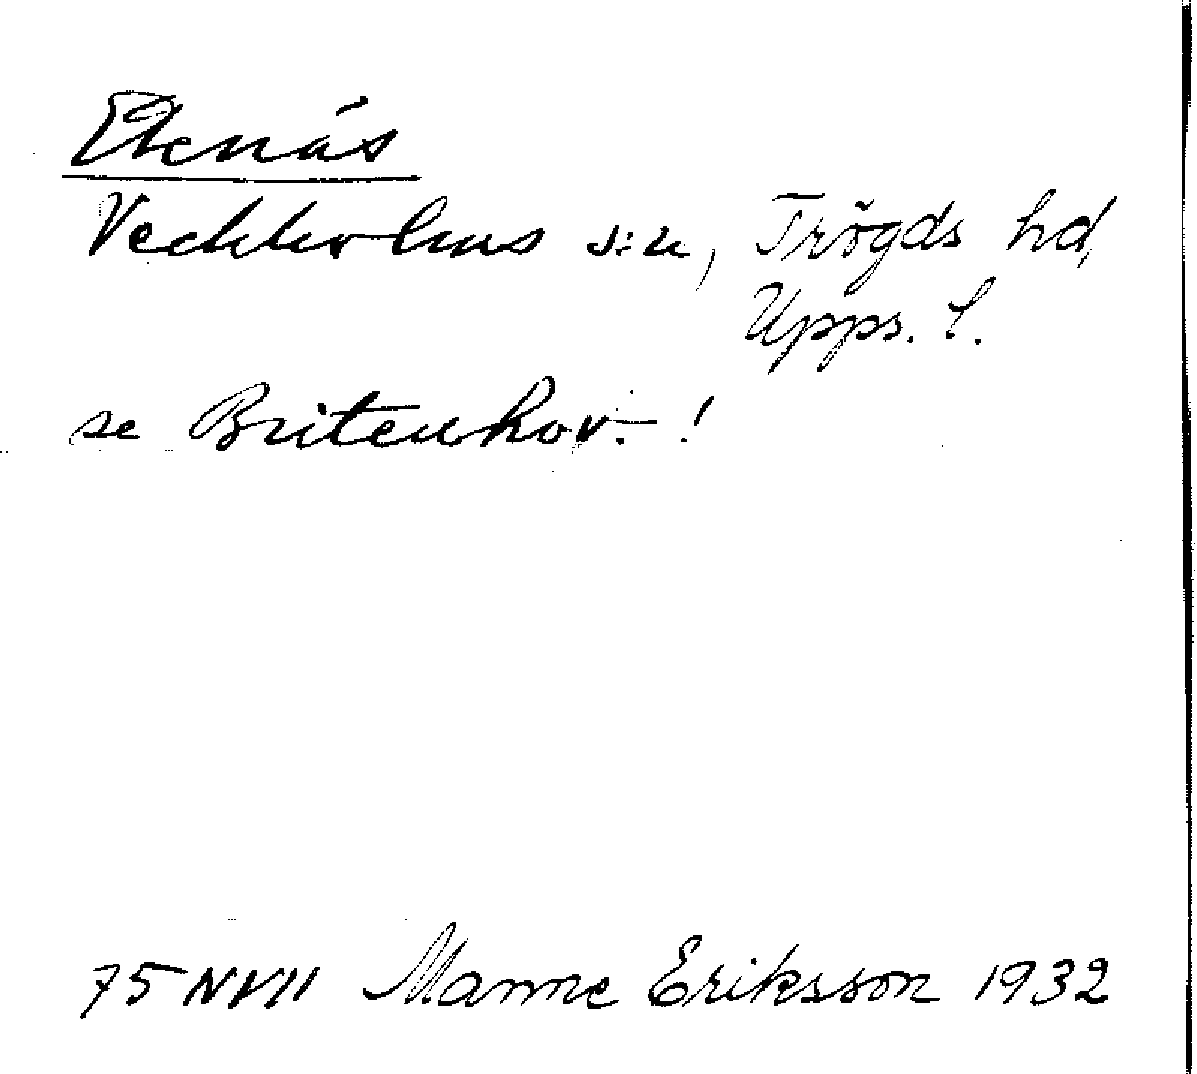 Ekenäs
Veckholms s:n, Trögds hd,
Upps. l.
se Britenhov. !
75 NVII Manne Eriksson 1932